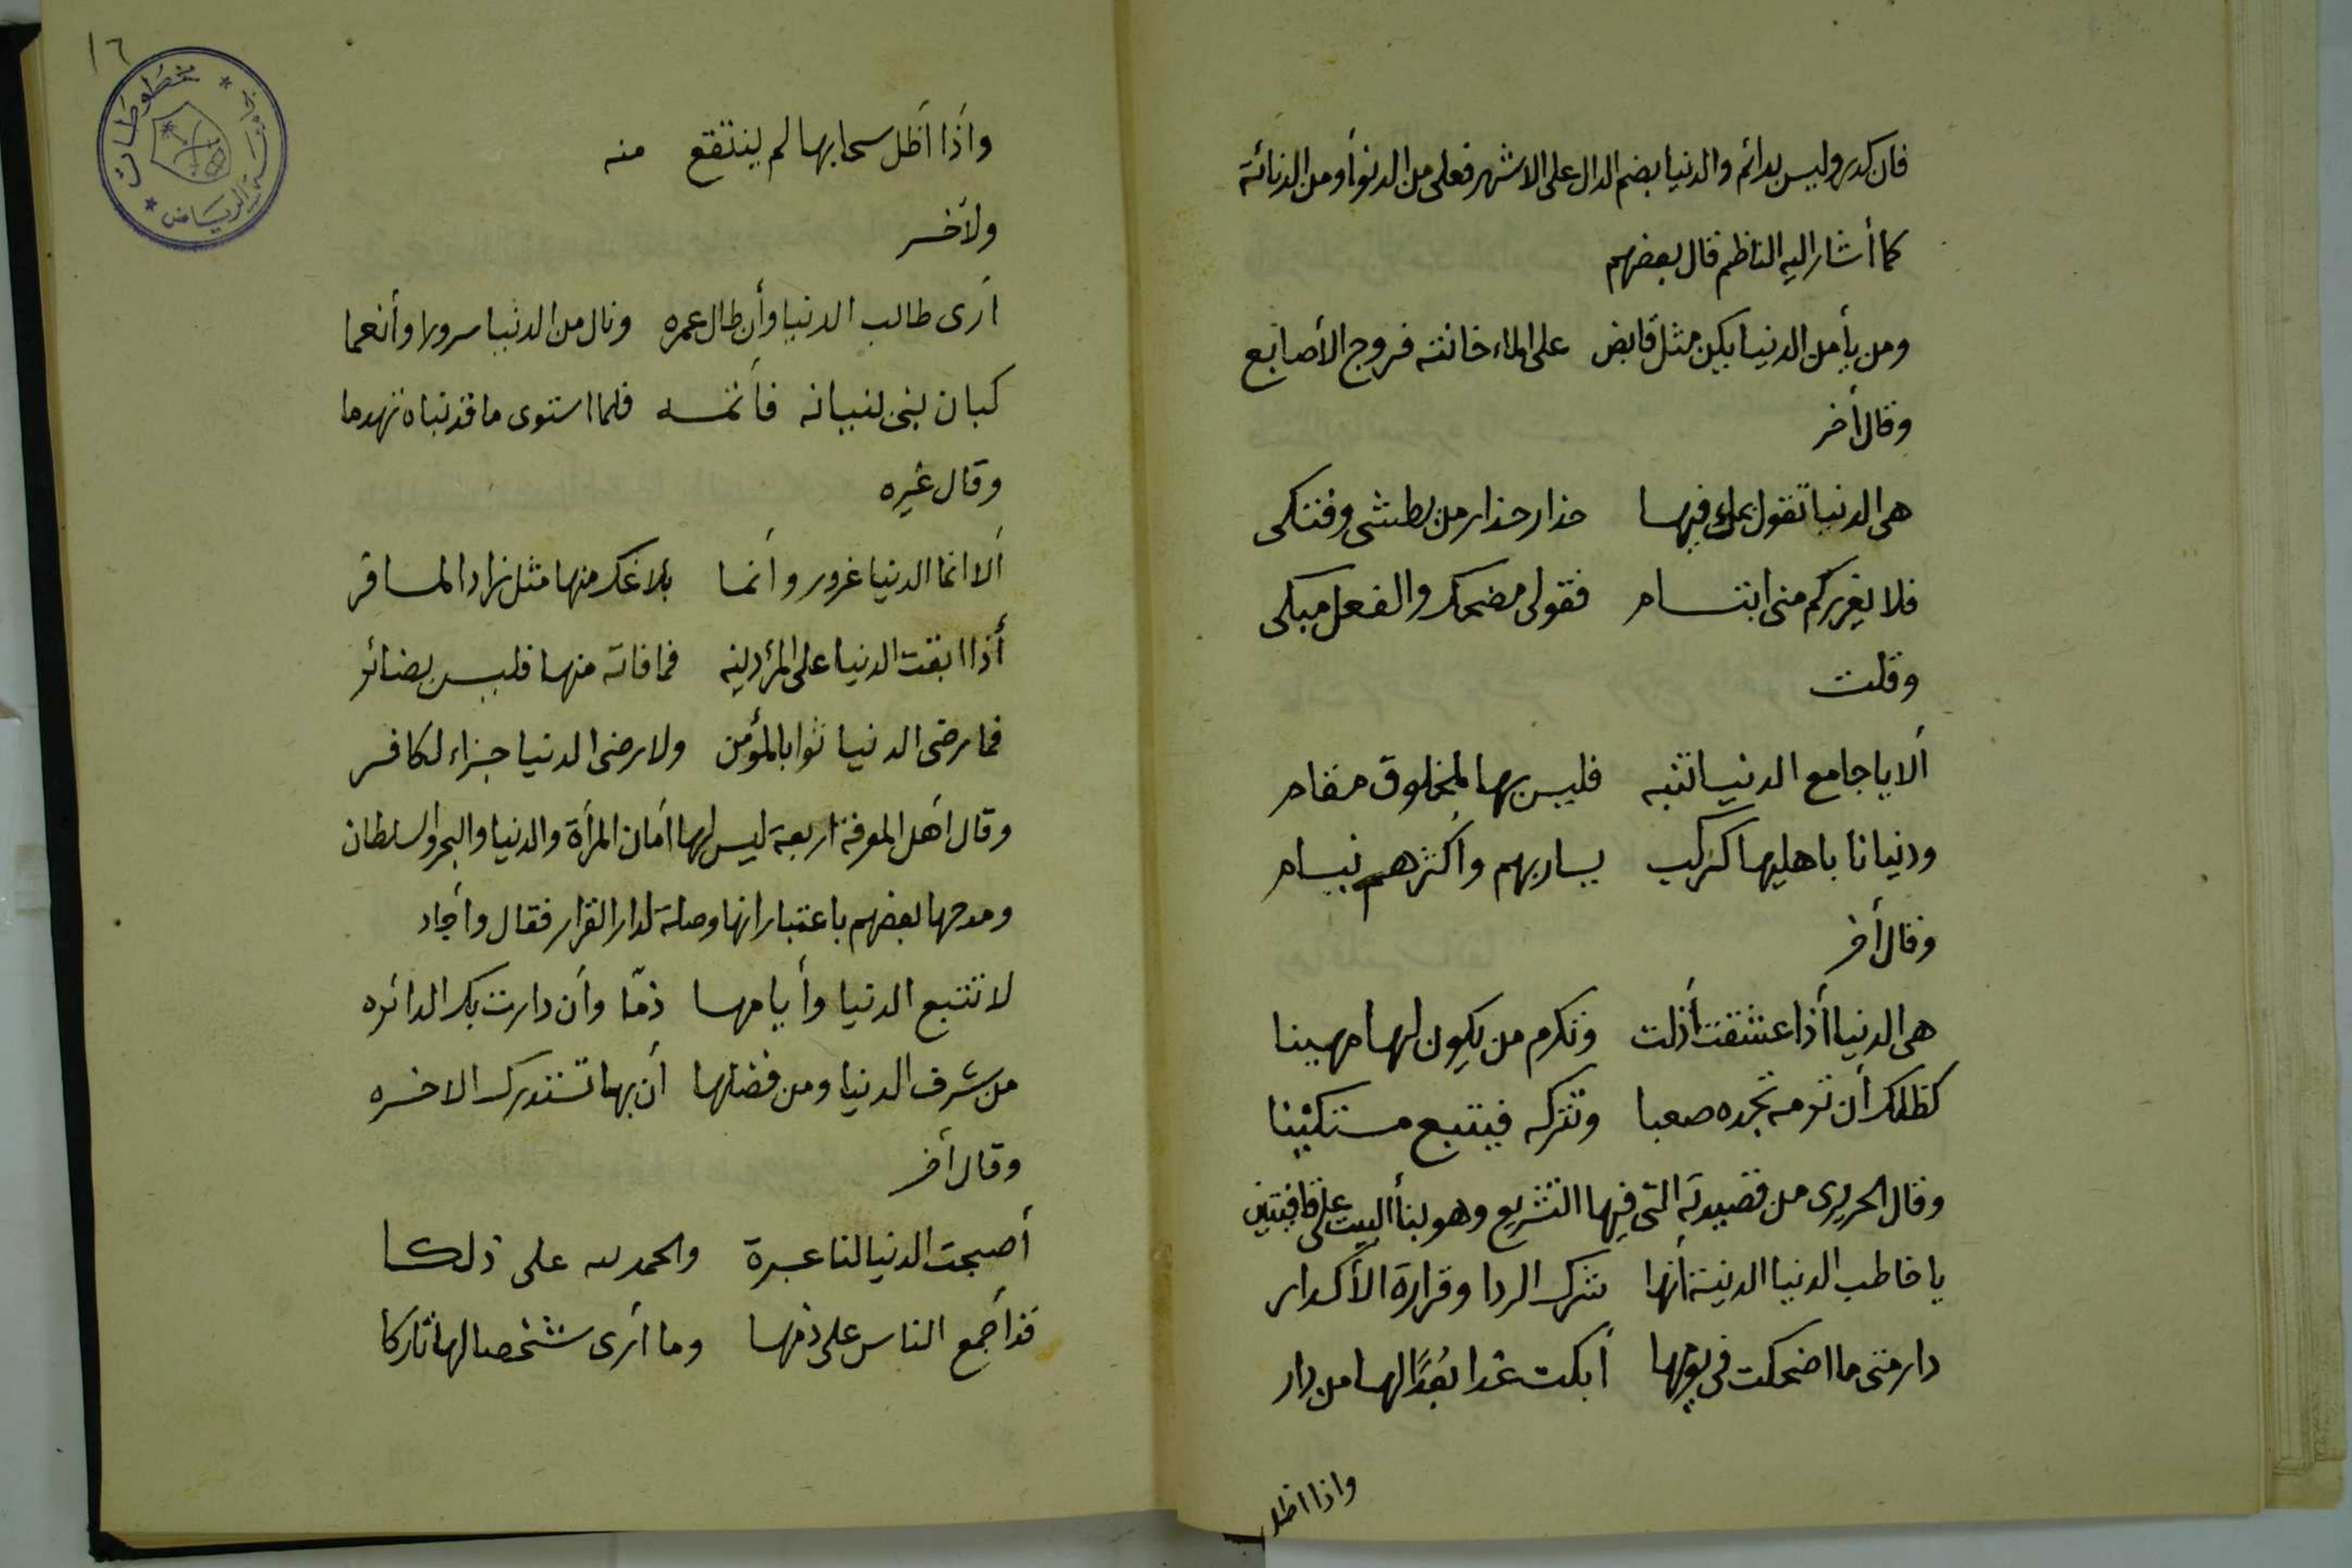 فان كدر وليس بدائم والدنيا بضم الدال على الاشهر فعلى من الدنو أو من الدنائة
كما أشار اليه الناظم قال بعضهم
ومن يأمن الدنيا يكن مثل قابض على الماء خانته فروج الأصابع
وقال أخر
هى الدنيا تقول بملء فيها حذار حذار من بطشى وفتكى
فلا يغرركم منى ابتسام فقولى مضحك والفعل مبكى
وقلت
ألا يا جامع الدنيا تنبه فليس بها لمخلوق مقام
ودنيانا باهليها كركب يسار بهم وأكثرهم نيام
وقال أخر
هى الدنيا أذا عشقت أذلت وتكرم من يكون لها مهينا
كظلك أن ترمه تجده صعبا وتتركه فيتبع مستكينا
وقال الحريرى من قصيدته التى فيها التشريع وهو بنأ البيت على قافيتين
يا خاطب الدنيا الدنية أنها شرك الردا وقرارة الأكدار
دار متى ما اضحكت فى يومها أبكت غدا بُعدًا لها من دار
واذا اظل
١٦
مخطوطات
الرياض
واذا أظل سحابها لم ينتقع منه
ولأخر
أرى طالب الدنيا وأن طال عمره ونال من الدنيا سرورا وأنعما
كبان بنى لنبيانه فأتمه فلما استوى ما قد بناه تهدما
وقال غيره
ألا انما الدنيا غرور وأنما بلاغك منها مثل زاد المسافر
أذا ابقت الدنيا على المرء دينه فما فاته منها فليس بضائر
فما رضى الدنيا ثوابا لمؤمن ولا رضى الدنيا جزاء لكافر
وقال أهل المعرفة اربعة ليس لها أمان المرأة والدنيا والبحر والسلطان
ومدحها بعضهم باعتبار انها وصلة لدار القرار فقال وأجاد
لا تتبع الدنيا وأيامها ذمّا وأن دارت بك الدائره
من شرف الدنيا ومن فضلها أن بها تستدرك الاخره
وقال أخر
أصبحت الدنيا لنا عبرة والحمد لله على ذلكا
قد أجمع الناس على ذمها وما أرى شخصا لها تاركا